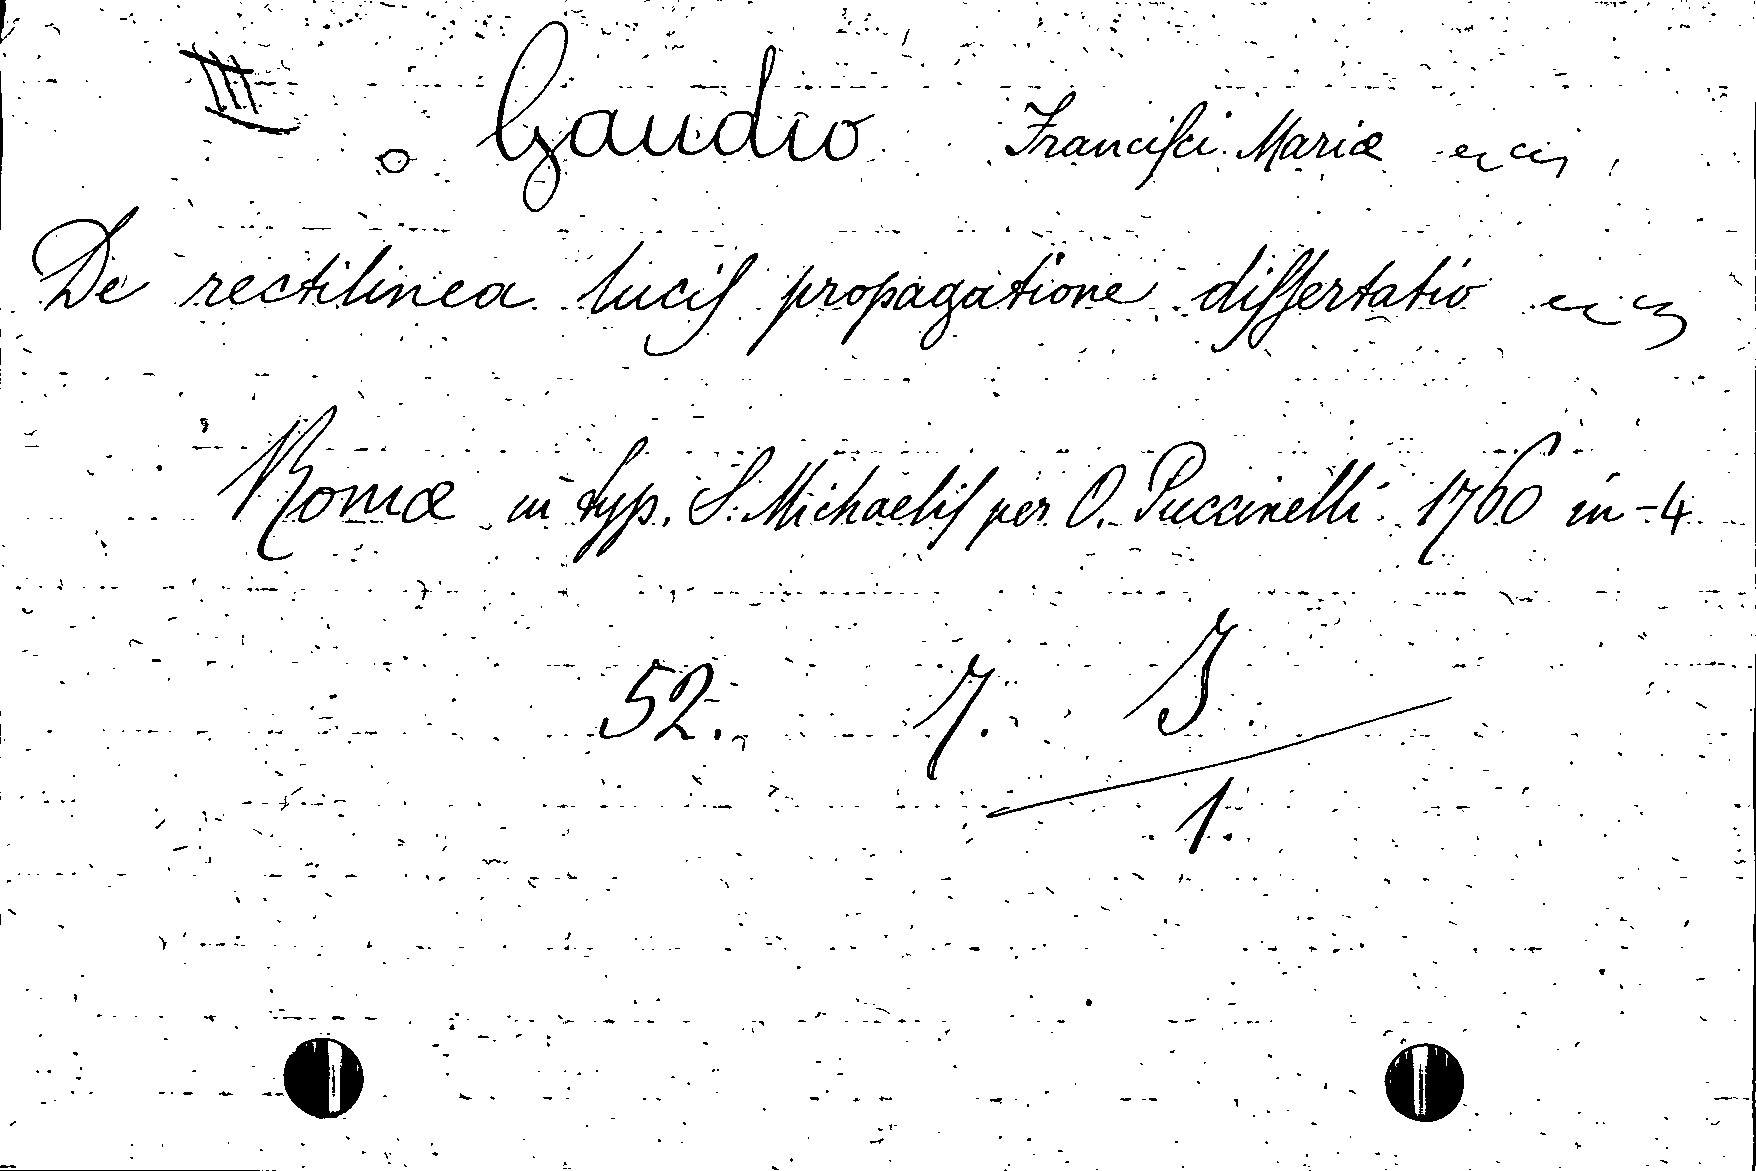 III
o Gaudio Franciſci Mariæ
De rectilinea luciſ propagatione diſſertatio
Romæ in typ. S. Michaeliſ per O. Puccinelli 1760 in-4
52. 7. J.
1.